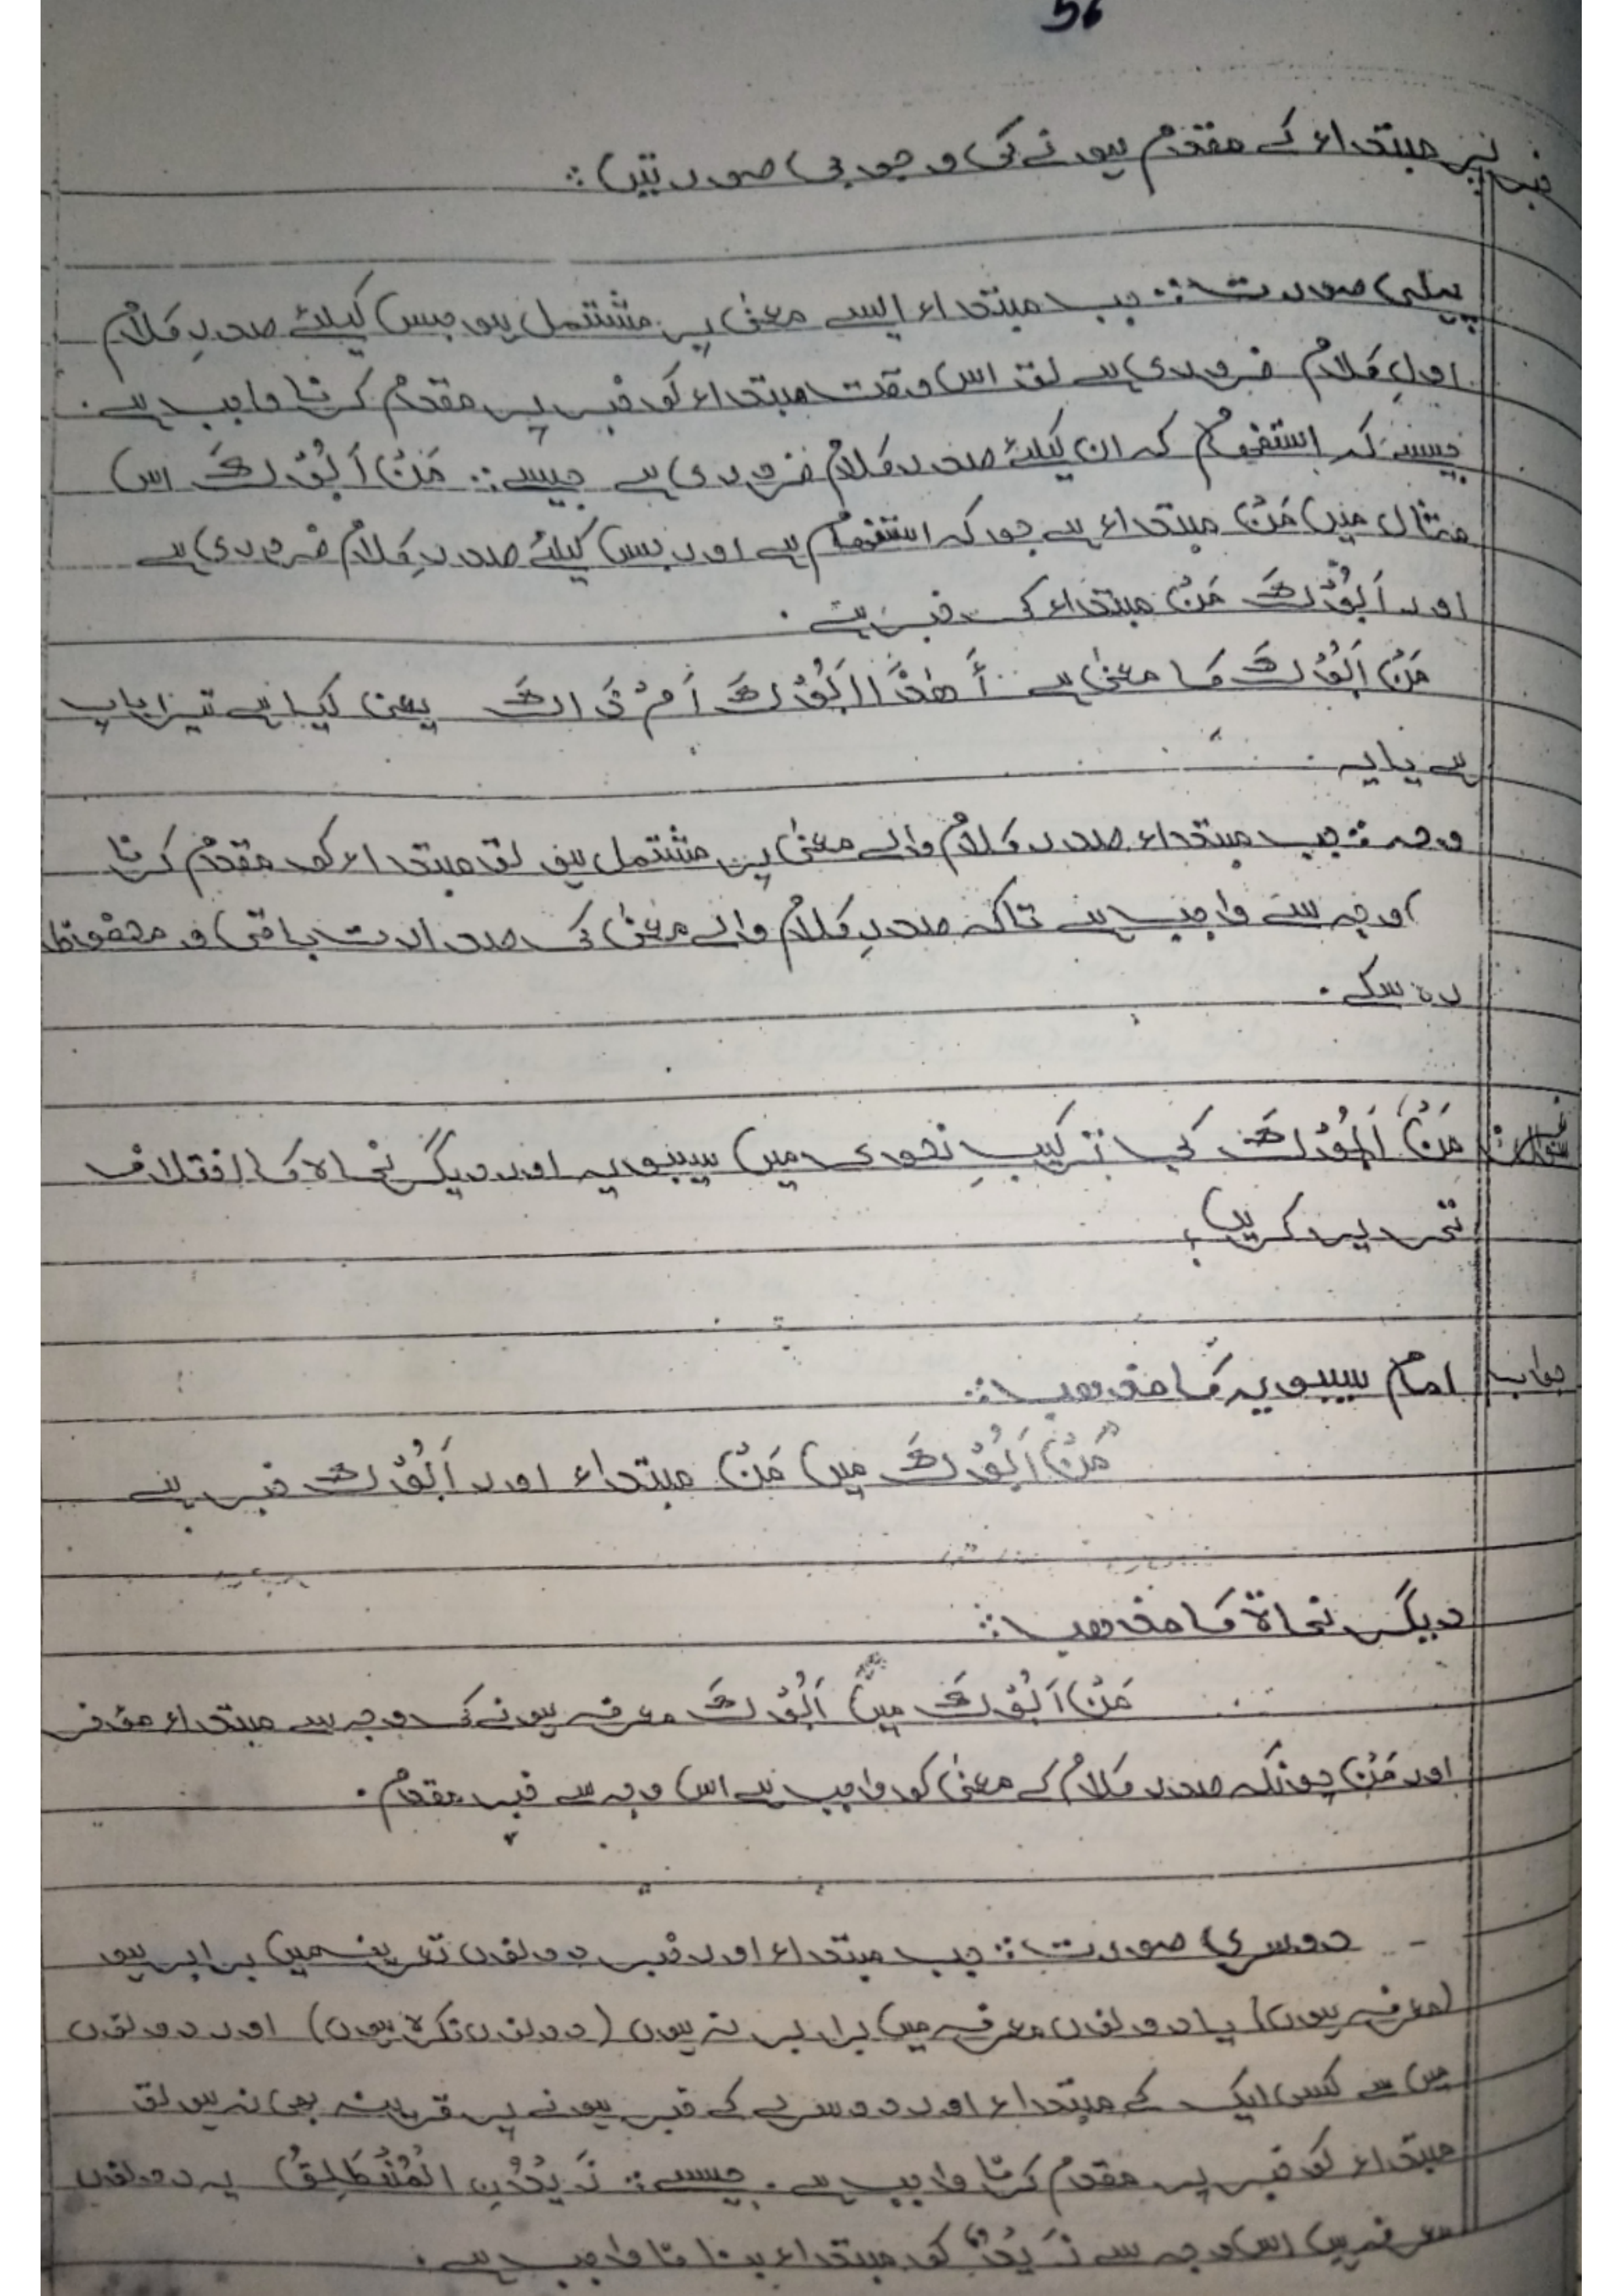 56
خبر پر مبتداء کے مقدم ہونے کی وجوبی صورتیں:
پہلی صورت: جب مبتداء ایسے معنیٰ پر مشتمل ہو جس کیلئے صدرِ کلام
اولِ کلام ضروری ہے تو اس وقت مبتداء کو خبر پر مقدم کرنا واجب ہے۔
جیسے کہ استفہام کہ ان کیلئے صدر کلام ضروری ہے جیسے: مَنْ اَبُوْكَ اس
مثال میں مَنْ مبتداء ہے جو کہ استفہام ہے اور جس کیلئے صدرِ کلام ضروری ہے
اور اَبُوْكَ مَنْ مبتداء کی خبر ہے۔
مَنْ اَبُوْكَ کا معنیٰ ہے أَهٰذَا اَبُوْكَ اَمْ ذَاكَ یعنی کیا ہے تیرا باپ
ہے یا یہ
وجہ: جب مبتداء صدر کلام والے معنیٰ پر مشتمل ہو تو مبتداء کو مقدم کرنا
اوجہ سے واجب ہے تاکہ صدرِ کلام والے معنیٰ کی صدارت باقی و محفوظ
رہ سکے۔
سوال: مَنْ اَبُوْكَ کی ترکیبِ نحوی میں سیبویہ اور دیگر نحاۃ کا اختلاف
تحریر کریں؟
جواب امام سیبویہ کا مذھب:
"مَنْ اَبُوْكَ میں مَنْ مبتداء اور اَبُوْكَ خبر ہے
دیگر نحاۃ کا مذھب:
مَنْ اَبُوْكَ میں اَبُوْكَ معرفہ ہونے کی وجہ سے مبتداء مؤخر
اور مَنْ چونکہ صدر کلام کے معنیٰ کو واجب ہے اس وجہ سے خبر مقدم۔
- دوسری صورت: جب مبتداء اور خبر دونوں تعریف میں برابر ہو
(معرفہ ہوں) یا دونوں معرفہ میں برابر نہ ہوں (دونوں نکرۃ ہوں) اور دونوں
میں سے کسی ایک کے مبتداء اور دوسرے کے خبر ہونے پر قرینہ بھی نہ ہو تو
مبتداء کو خبر پر مقدم کرنا واجب ہے۔ جیسے: زَيْدُنِ الْمُنْطَلِقُ یہ دونوں
معرفہ ہیں اس وجہ سے زَيْدٌ کو مبتداء بنانا واجب ہے۔